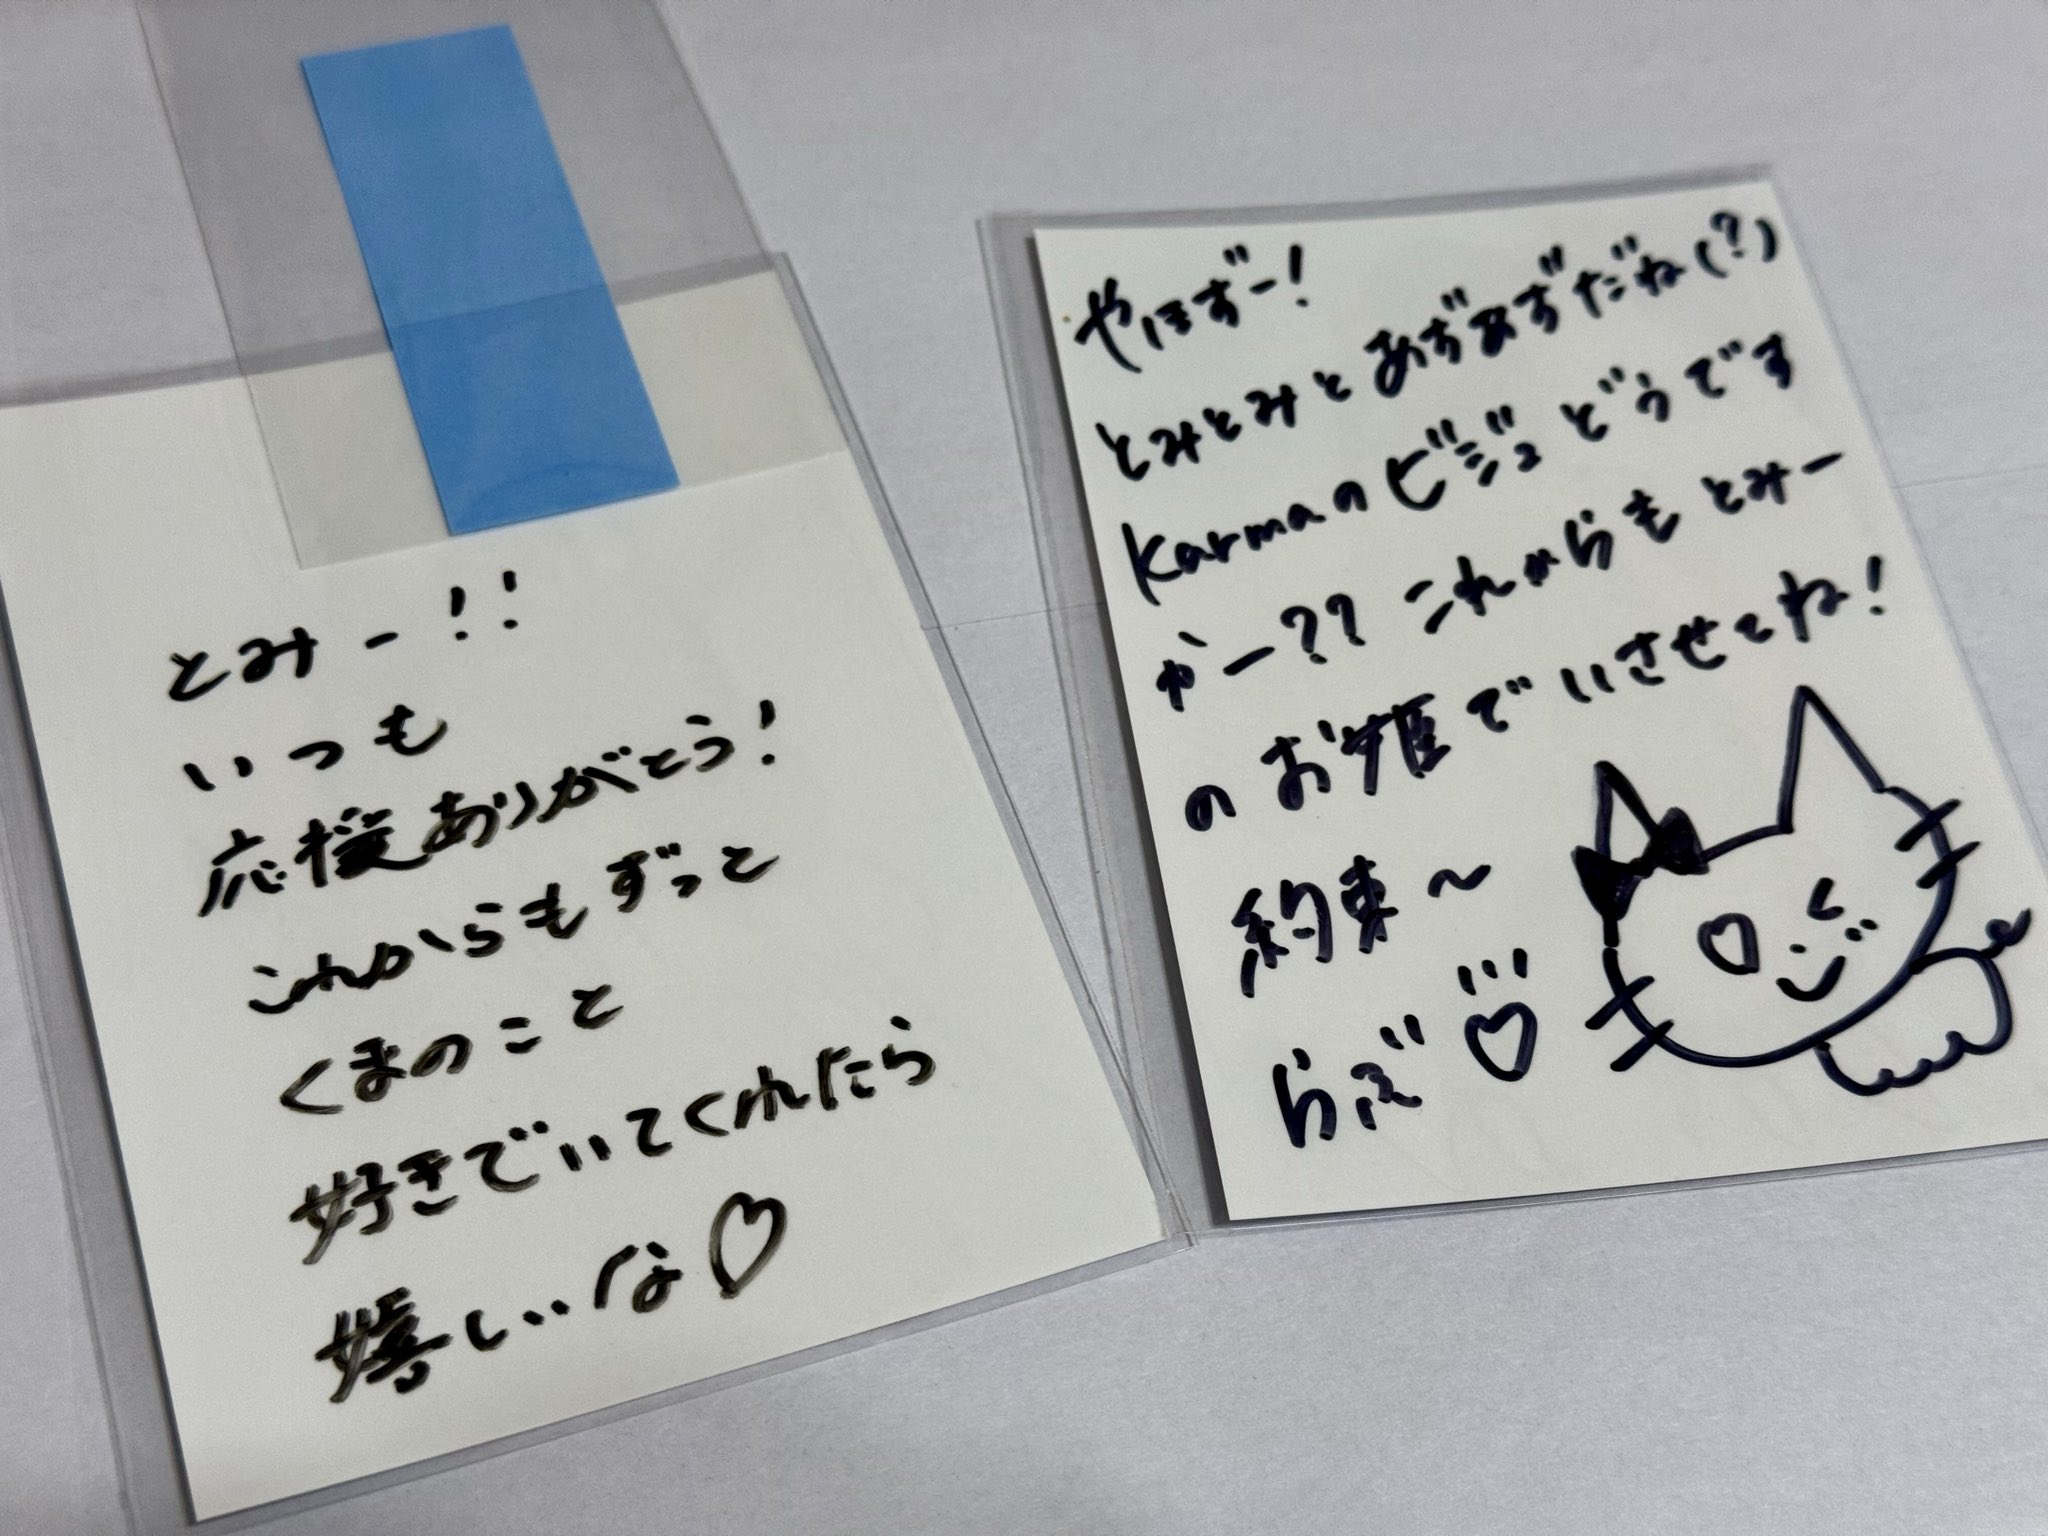 とみー!!
いつも
応援ありがとう!
これからもずっと
くまのこと
好きでいてくれたら
嬉しいな♡
やほずー!
とみとみとあずあずだね(?)
Karmaのビジュどうです
かー?? これからもとみー
のお姫でいさせてね!
約束〜
らぶ♡